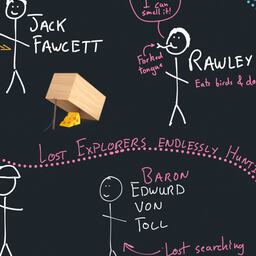 I can
smell it!
JACK
FAWCETT
Forked
tongue
RAWLEY
Eats birds & do
LOST EXPLORERS ENDLESSLY HUNTI
BARON
EDWURD
VON
TOLL
Lost searching